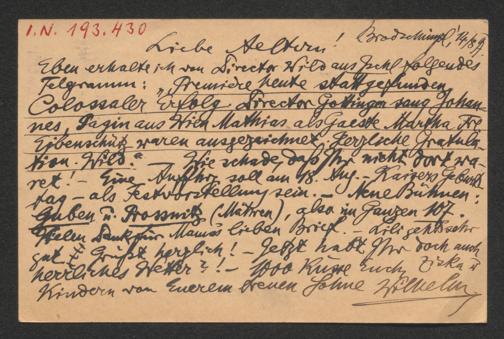 I.N. 193.430
Liebe Aeltern!
Eben erhalte ich von Director Wild aus Ischl folgendes
Telegramm: „Première heute stattgefunden
Colossaler Erfolg Director Göttinger sang Johan-
nes, aus Wien Mathias als Gäste Martha Frl
Eibenschütz waren ausgezeichnet, herzlichste Gratula-
tion. Wild." — Wie schade, daß Ihr nicht dort wa-
ret! — Eine Aufführ. soll am 18. Aug. — Kaisers Geburts-
tag — als Festvorstellung sein. — Neue Bühnen:
Guben u. Prossnitz (Mähren), also im Ganzen 107.
Vielen Dank für Mamas lieben Brief. — Lili geht's sehr
gut u. Grüßt herzlich! — Jetzt habt Ihr doch auch
herrliches Wetter?! — 1000 Küsse Euch, u
Kindern von Euerem treuen Sohne Wilhelm